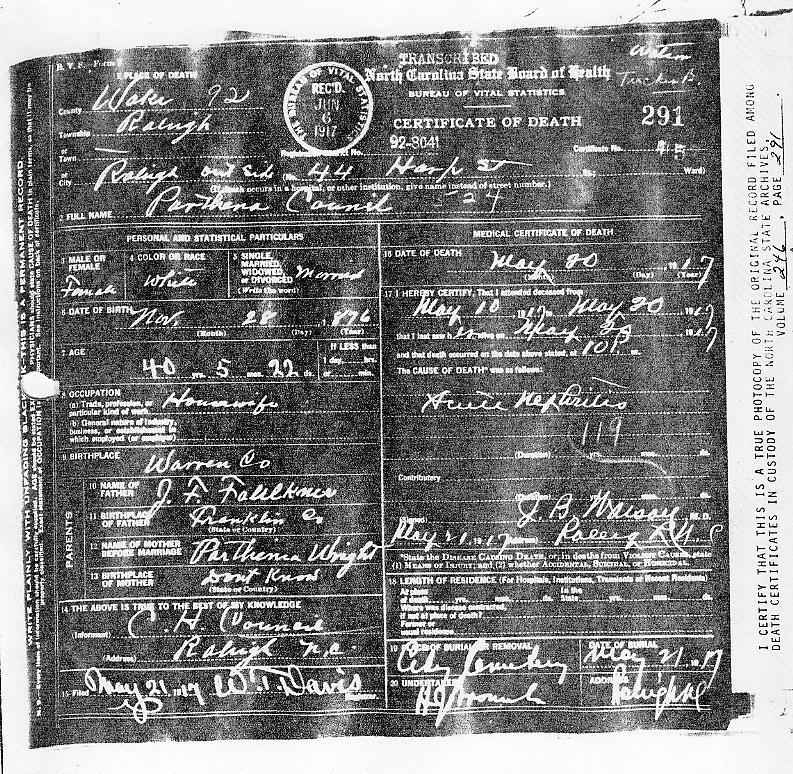 TRANSCRIBED
North Carolina State Board of Health
BUREAU OF VITAL STATISTICS
CERTIFICATE OF DEATH
291
92-3041
Certificate No.
THE BUREAU OF VITAL STATISTICS
REC'D.
JUN
6
1917
1 PLACE OF DEATH
County Wake 92
Township Raleigh
or
Town
or
City Raleigh out side (No. 44 Harp St St.; Ward)
(If death occurs in a hospital, or other institution, give name instead of street number.)
2 FULL NAME Parthena Council 524
PERSONAL AND STATISTICAL PARTICULARS
3 MALE OR FEMALE Female
4 COLOR OR RACE White
5 SINGLE, MARRIED, WIDOWED or DIVORCED (Write the word) Married
6 DATE OF BIRTH Nov. 28, 1876
(Month) (Day) (Year)
7 AGE 40 yrs. 5 mos. 22 ds.
If LESS than 1 day, hrs. or min.
8 OCCUPATION
(a) Trade, profession, or particular kind of work Housewife
(b) General nature of industry, business, or establishment in which employed (or employer)
9 BIRTHPLACE Warren Co
PARENTS
10 NAME OF FATHER J. F. Faulkner
11 BIRTHPLACE OF FATHER Franklin Co.
(State or Country)
12 NAME OF MOTHER BEFORE MARRIAGE Parthenia Wright
13 BIRTHPLACE OF MOTHER Dont Know
(State or Country)
14 THE ABOVE IS TRUE TO THE BEST OF MY KNOWLEDGE
(Informant) C. H. Council
(Address) Raleigh N.C.
15 Filed May 21, 1917 W. T. Davis
Registrar
MEDICAL CERTIFICATE OF DEATH
16 DATE OF DEATH May 20 1917
(Month) (Day) (Year)
17 I HEREBY CERTIFY, That I attended deceased from
May 10 1917 May 20 1917
that I last saw her alive on May 20 1917
and that death occurred on the date above stated, at 10 P. m.
The CAUSE OF DEATH* was as follows:
Acute Nephritis
119
(Duration) yrs. mos. ds.
Contributory
(Duration) yrs. mos. ds.
(Signed) J. B. M. D.
May 21 1917 (Address) Raleigh N. C
*State the DISEASE CAUSING DEATH, or, in deaths from VIOLENT CAUSES, state
(1) MEANS OF INJURY; and (2) whether ACCIDENTAL, SUICIDAL, or HOMICIDAL.
18 LENGTH OF RESIDENCE (For Hospitals, Institutions, Transients or Recent Residents)
At place of death yrs. mos. ds. In the State yrs. mos. ds.
Where was disease contracted,
if not at place of death?
Former or
usual residence
19 PLACE OF BURIAL OR REMOVAL City Cemetery
DATE OF BURIAL May 21 1917
20 UNDERTAKER
ADDRESS Raleigh NC
WRITE PLAINLY WITH UNFADING BLACK INK—THIS IS A PERMANENT RECORD.
I CERTIFY THAT THIS IS A TRUE PHOTOCOPY OF THE ORIGINAL RECORD FILED AMONG
DEATH CERTIFICATES IN CUSTODY OF THE NORTH CAROLINA STATE ARCHIVES,
VOLUME 246, PAGE 291.